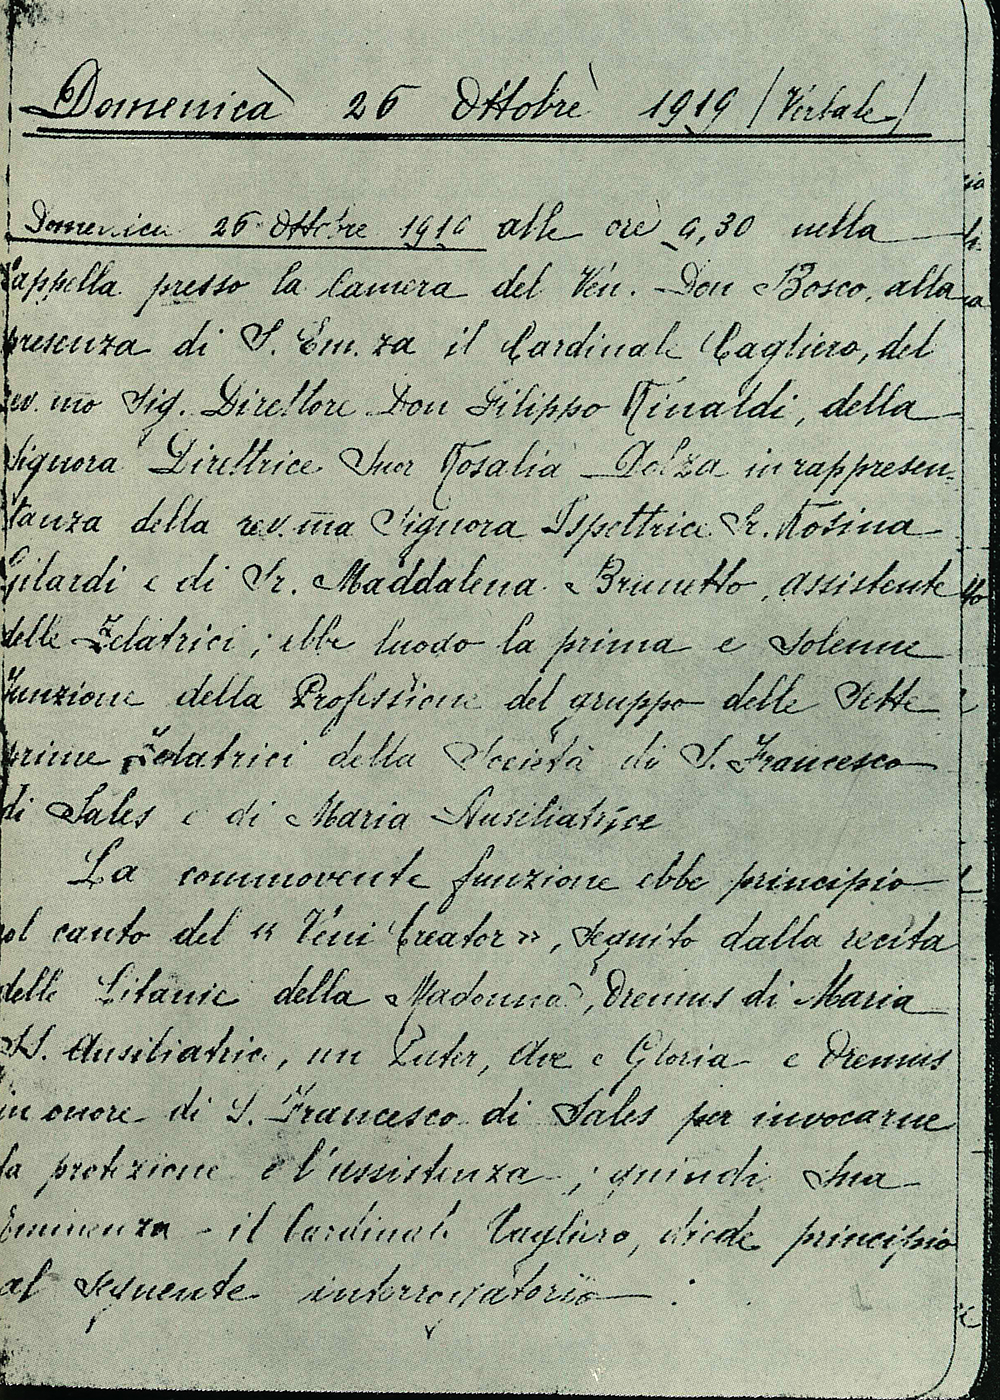 Domenica 26 Ottobre 1919 (Verbale)
Domenica 26 Ottobre 1919 alle ore 9,30 nella
Cappella presso la Camera del Ven. Don Bosco, alla
presenza di S. Em.za il Cardinale Cagliero, del
rev.mo Sig. Direttore Don Filippo Rinaldi, della
Signora Direttrice Suor Rosalia Dolza in rappresen-
tanza della rev.ma Signora Ispettrice Sr. Rosina
Gilardi e di Sr. Maddalena Brunetto, assistente
delle Zelatrici; ebbe luogo la prima e solenne
funzione della Professione del gruppo delle Sette
prime Zelatrici della Società di S. Francesco
di Sales e di Maria Ausiliatrice
La commovente funzione ebbe principio
col canto del « Veni Creator », seguito dalla recita
delle Litanie della Madonna, Oremus di Maria
SS. Ausiliatrice, un Pater, Ave e Gloria e Oremus
in onore di S. Francesco di Sales per invocarne
la protezione e l'assistenza; quindi Sua
Eminenza il Cardinale Cagliero, diede principio
al seguente interrogatorio :